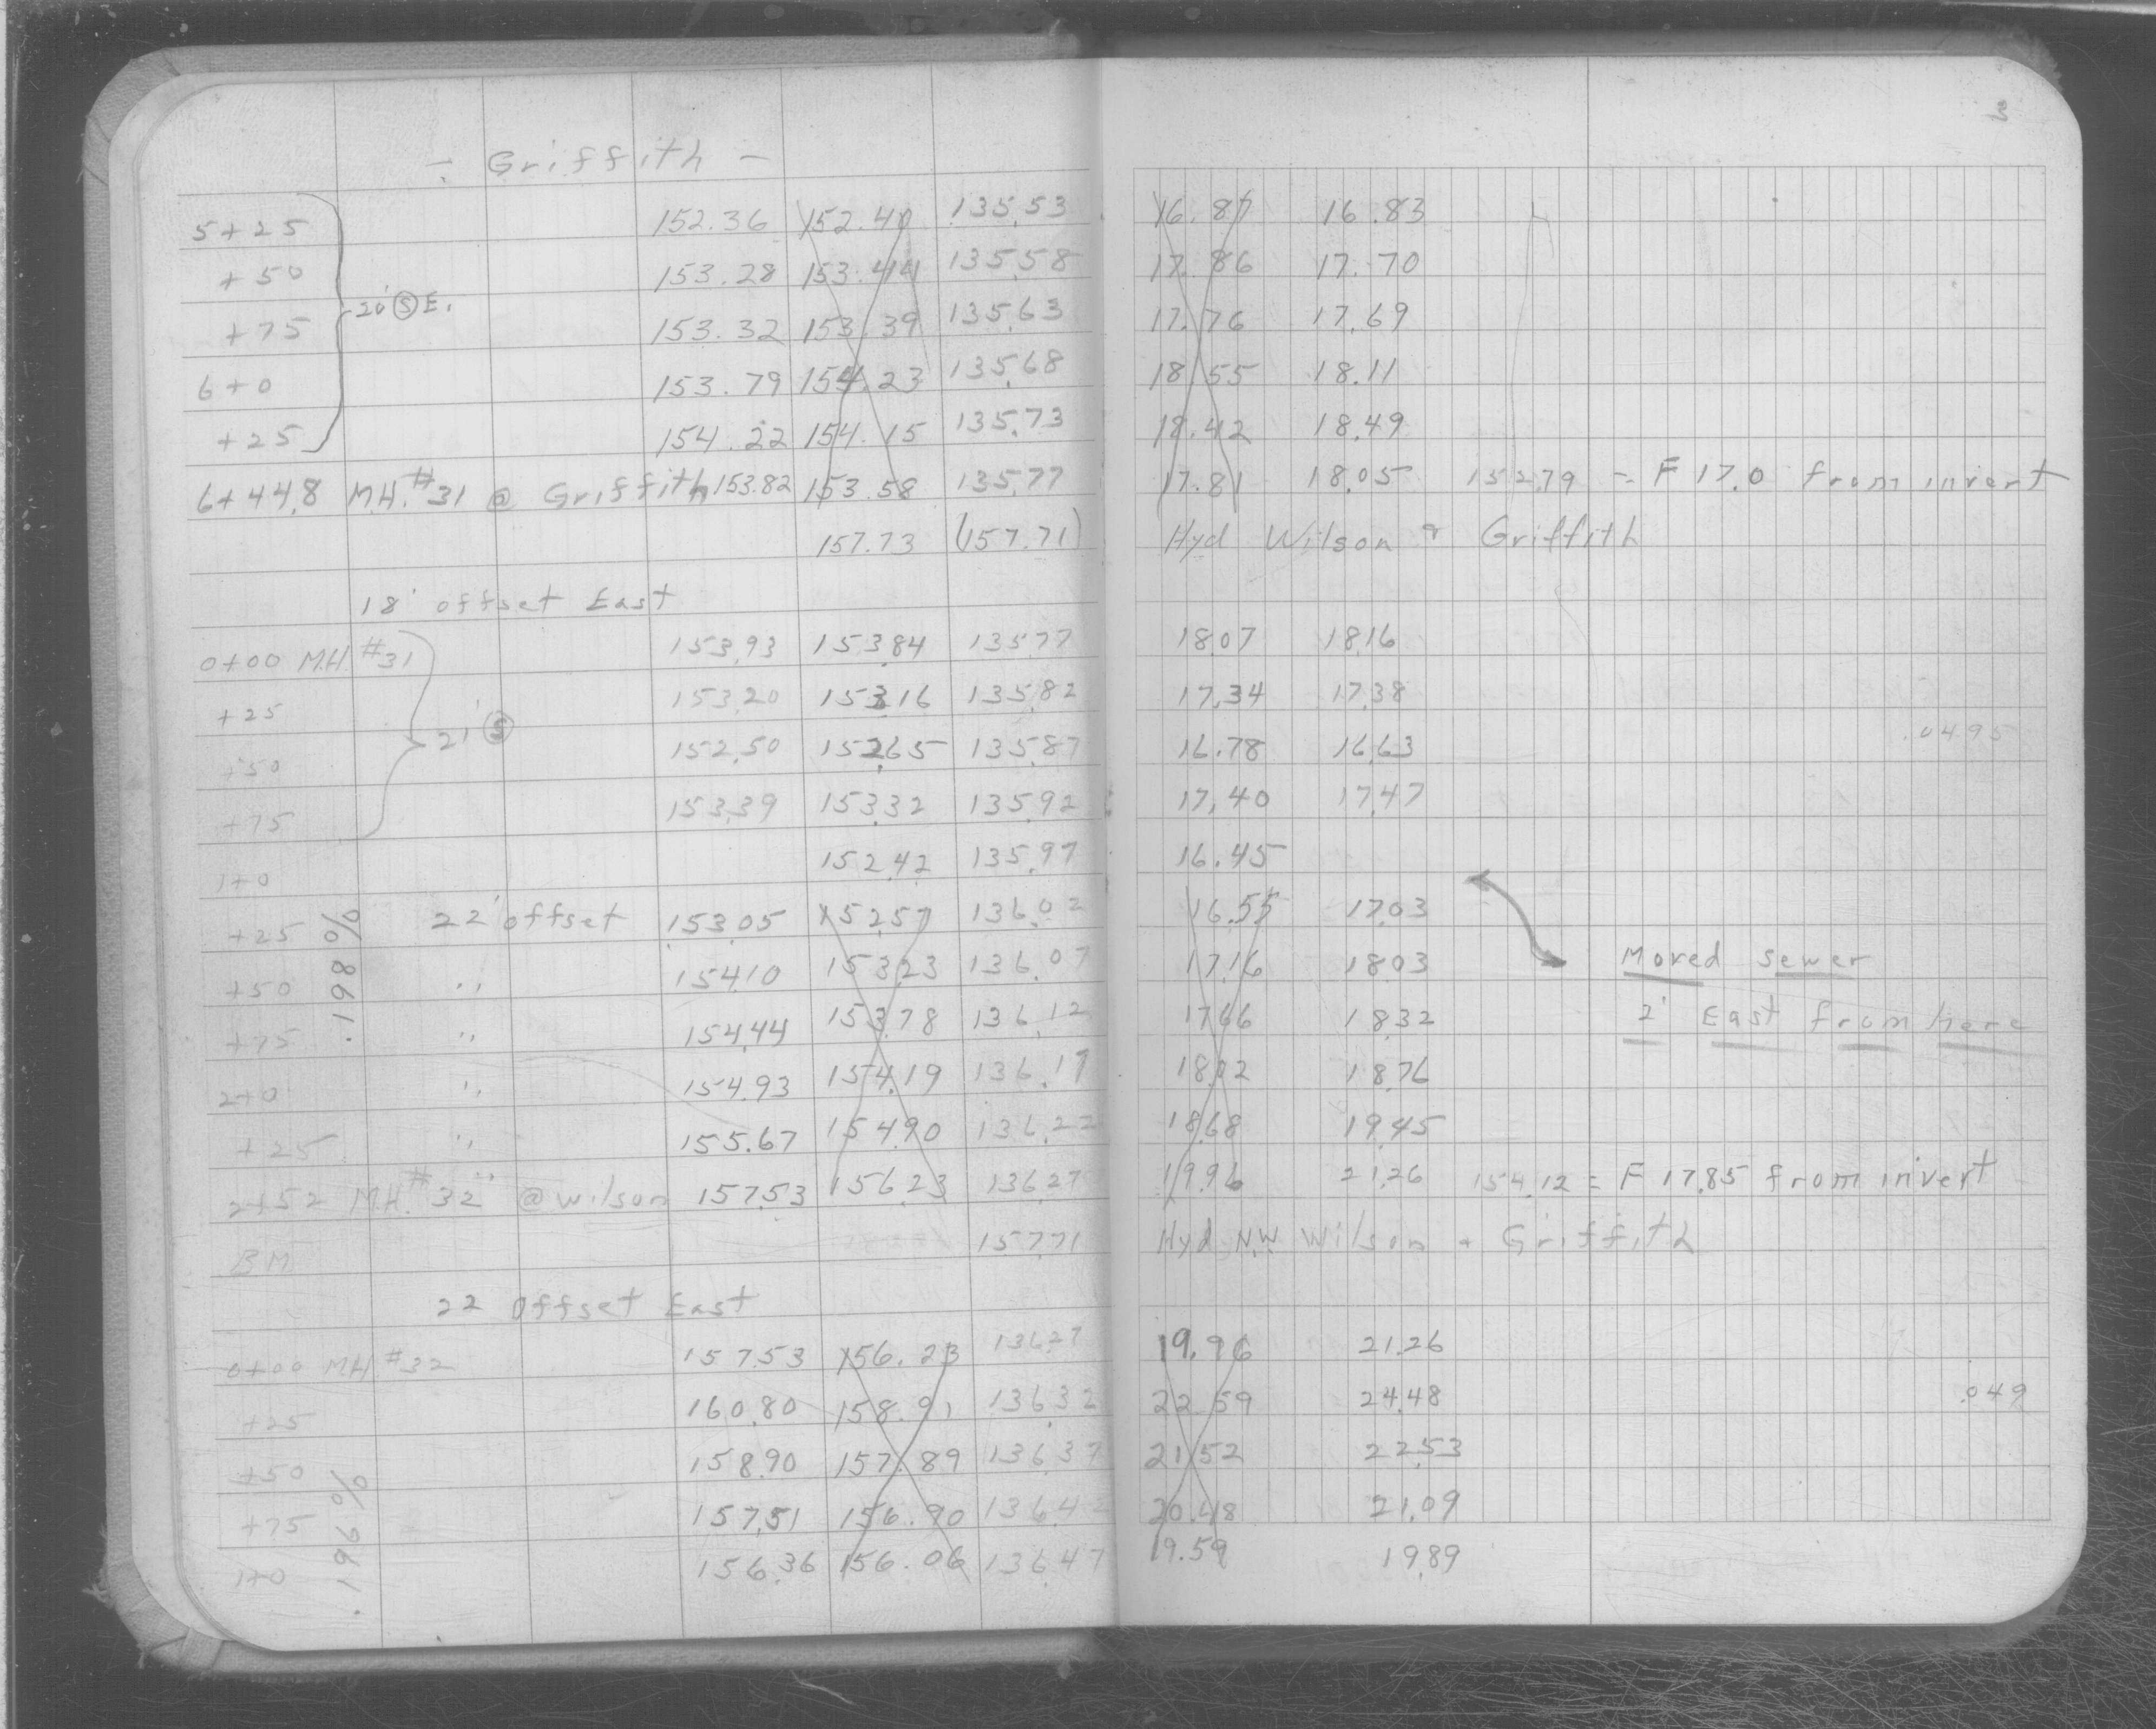 3
- Griffith -
5+25 152.36 152.40 135.53 16.87 16.83
+50 153.28 153.44 135.58 17.86 17.70
+75 20' S E. 153.32 153.39 135.63 17.76 17.69
6+0 153.79 154.23 135.68 18.55 18.11
+25 154.22 154.15 135.73 18.42 18.49
6+44.8 M.H. #31 @ Griffith 153.82 153.58 135.77 17.81 18.05 152.79 = F 17.0 from invert
157.73 (157.71) Hyd Wilson & Griffith
18' offset East
0+00 M.H. #31 153.93 153.84 135.77 18.07 18.16
+25 153.20 153.16 135.82 17.34 17.38
+50 21' S 152.50 152.65 135.87 16.78 16.63 .0495
+75 153.39 153.32 135.92 17.40 17.47
1+0 152.42 135.97 16.45
+25 22' offset 153.05 152.57 136.02 16.55 17.03
+50 " 154.10 153.23 136.07 17.16 18.03 Moved sewer
+75 " 154.44 153.78 136.12 17.66 18.32 2' East from here
2+0 " 154.93 154.19 136.17 18.02 18.76
+25 " 155.67 154.90 136.22 18.68 19.45
.198%
2+52 M.H. #32 " @ Wilson 157.53 156.23 136.27 19.96 21.26 154.12 = F 17.85 from invert
BM 157.71 Hyd N.W. Wilson & Griffith
22 Offset East
0+00 M.H. #32 157.53 156.23 136.27 19.96 21.26
+25 160.80 158.91 136.32 22.59 24.48 .049
+50 158.90 157.89 136.37 21.52 22.53
+75 157.51 156.90 136.42 20.48 21.09
1+0 156.36 156.06 136.47 19.59 19.89
.196%